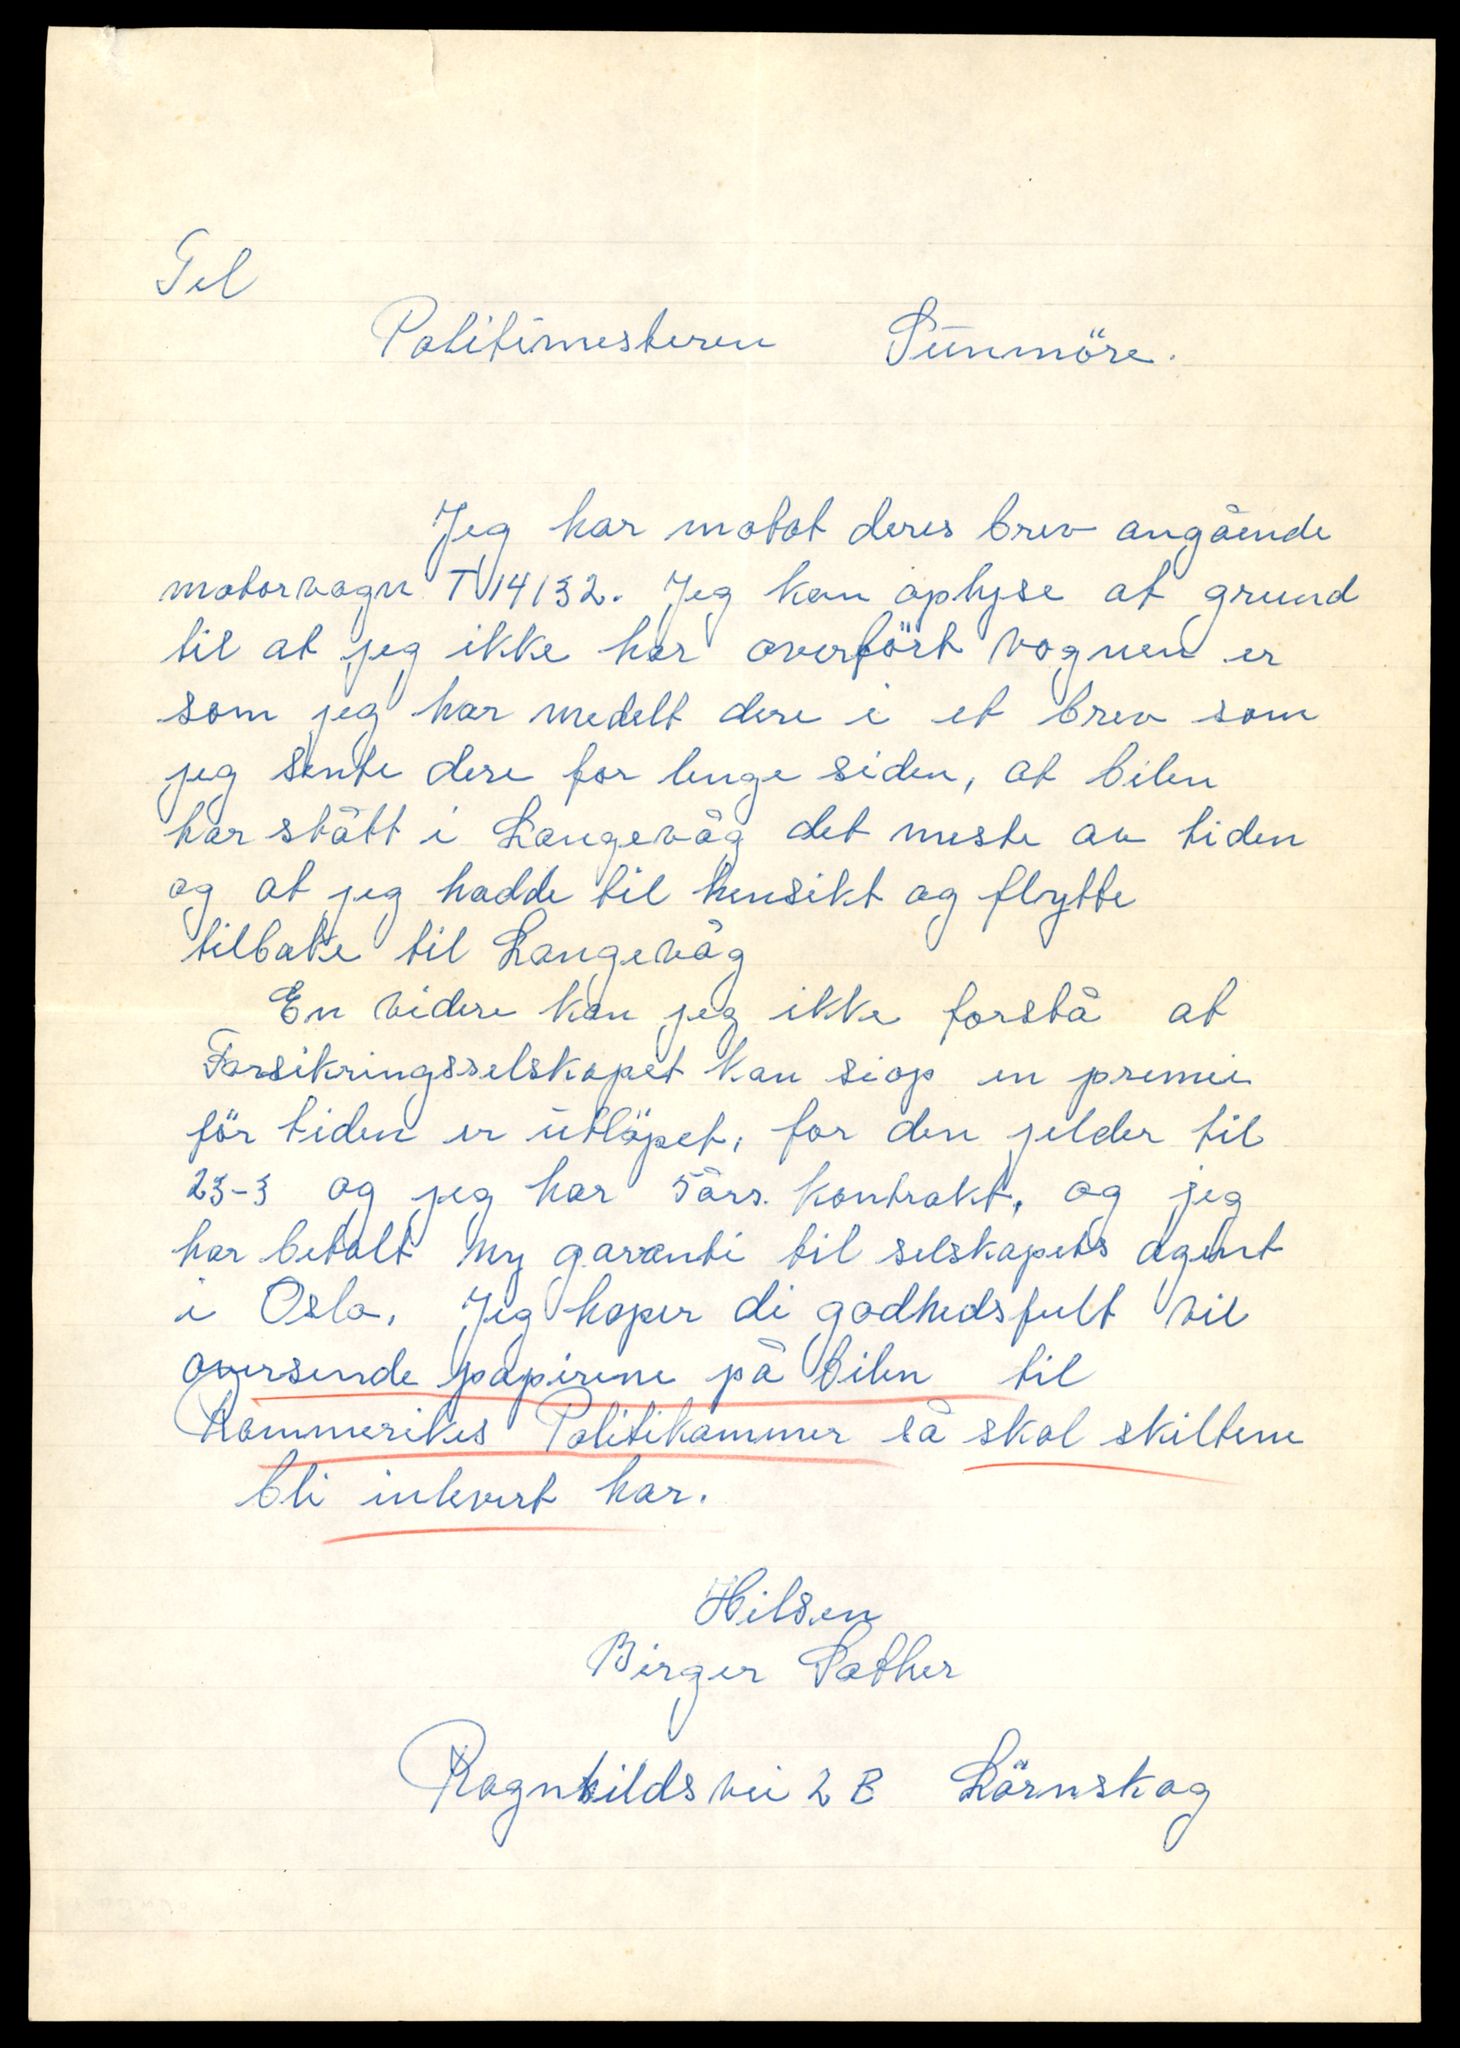 Til
Politimesteren Sunmöre.
Jeg har motat deres brev angående
motorvogn T 14132. Jeg kan oplyse at grund
til at jeg ikke har overfört vognen er
som jeg har medelt dere i et brev som
jeg sente dere for lenge siden, at bilen
har stått i Langevåg det meste av tiden
og at jeg hadde til hensikt og flytte
tilbake til Langevåg
En videre kan jeg ikke forstå at
Forsikringsselskapet kan siop en premie
för tiden er utlöpet, for den jelder til
23-3 og jeg har 5års. kontrakt, og jeg
har betalt ny garanti til selskapets agent
i Oslo. Jeg haper di godhedsfult vil
oversende papirene på bilen til
Rommerikes Politikammer så skal skiltene
bli inlevert har.
Hilsen
Birger Sather
Ragnhilds vei 2 B Lörnskog